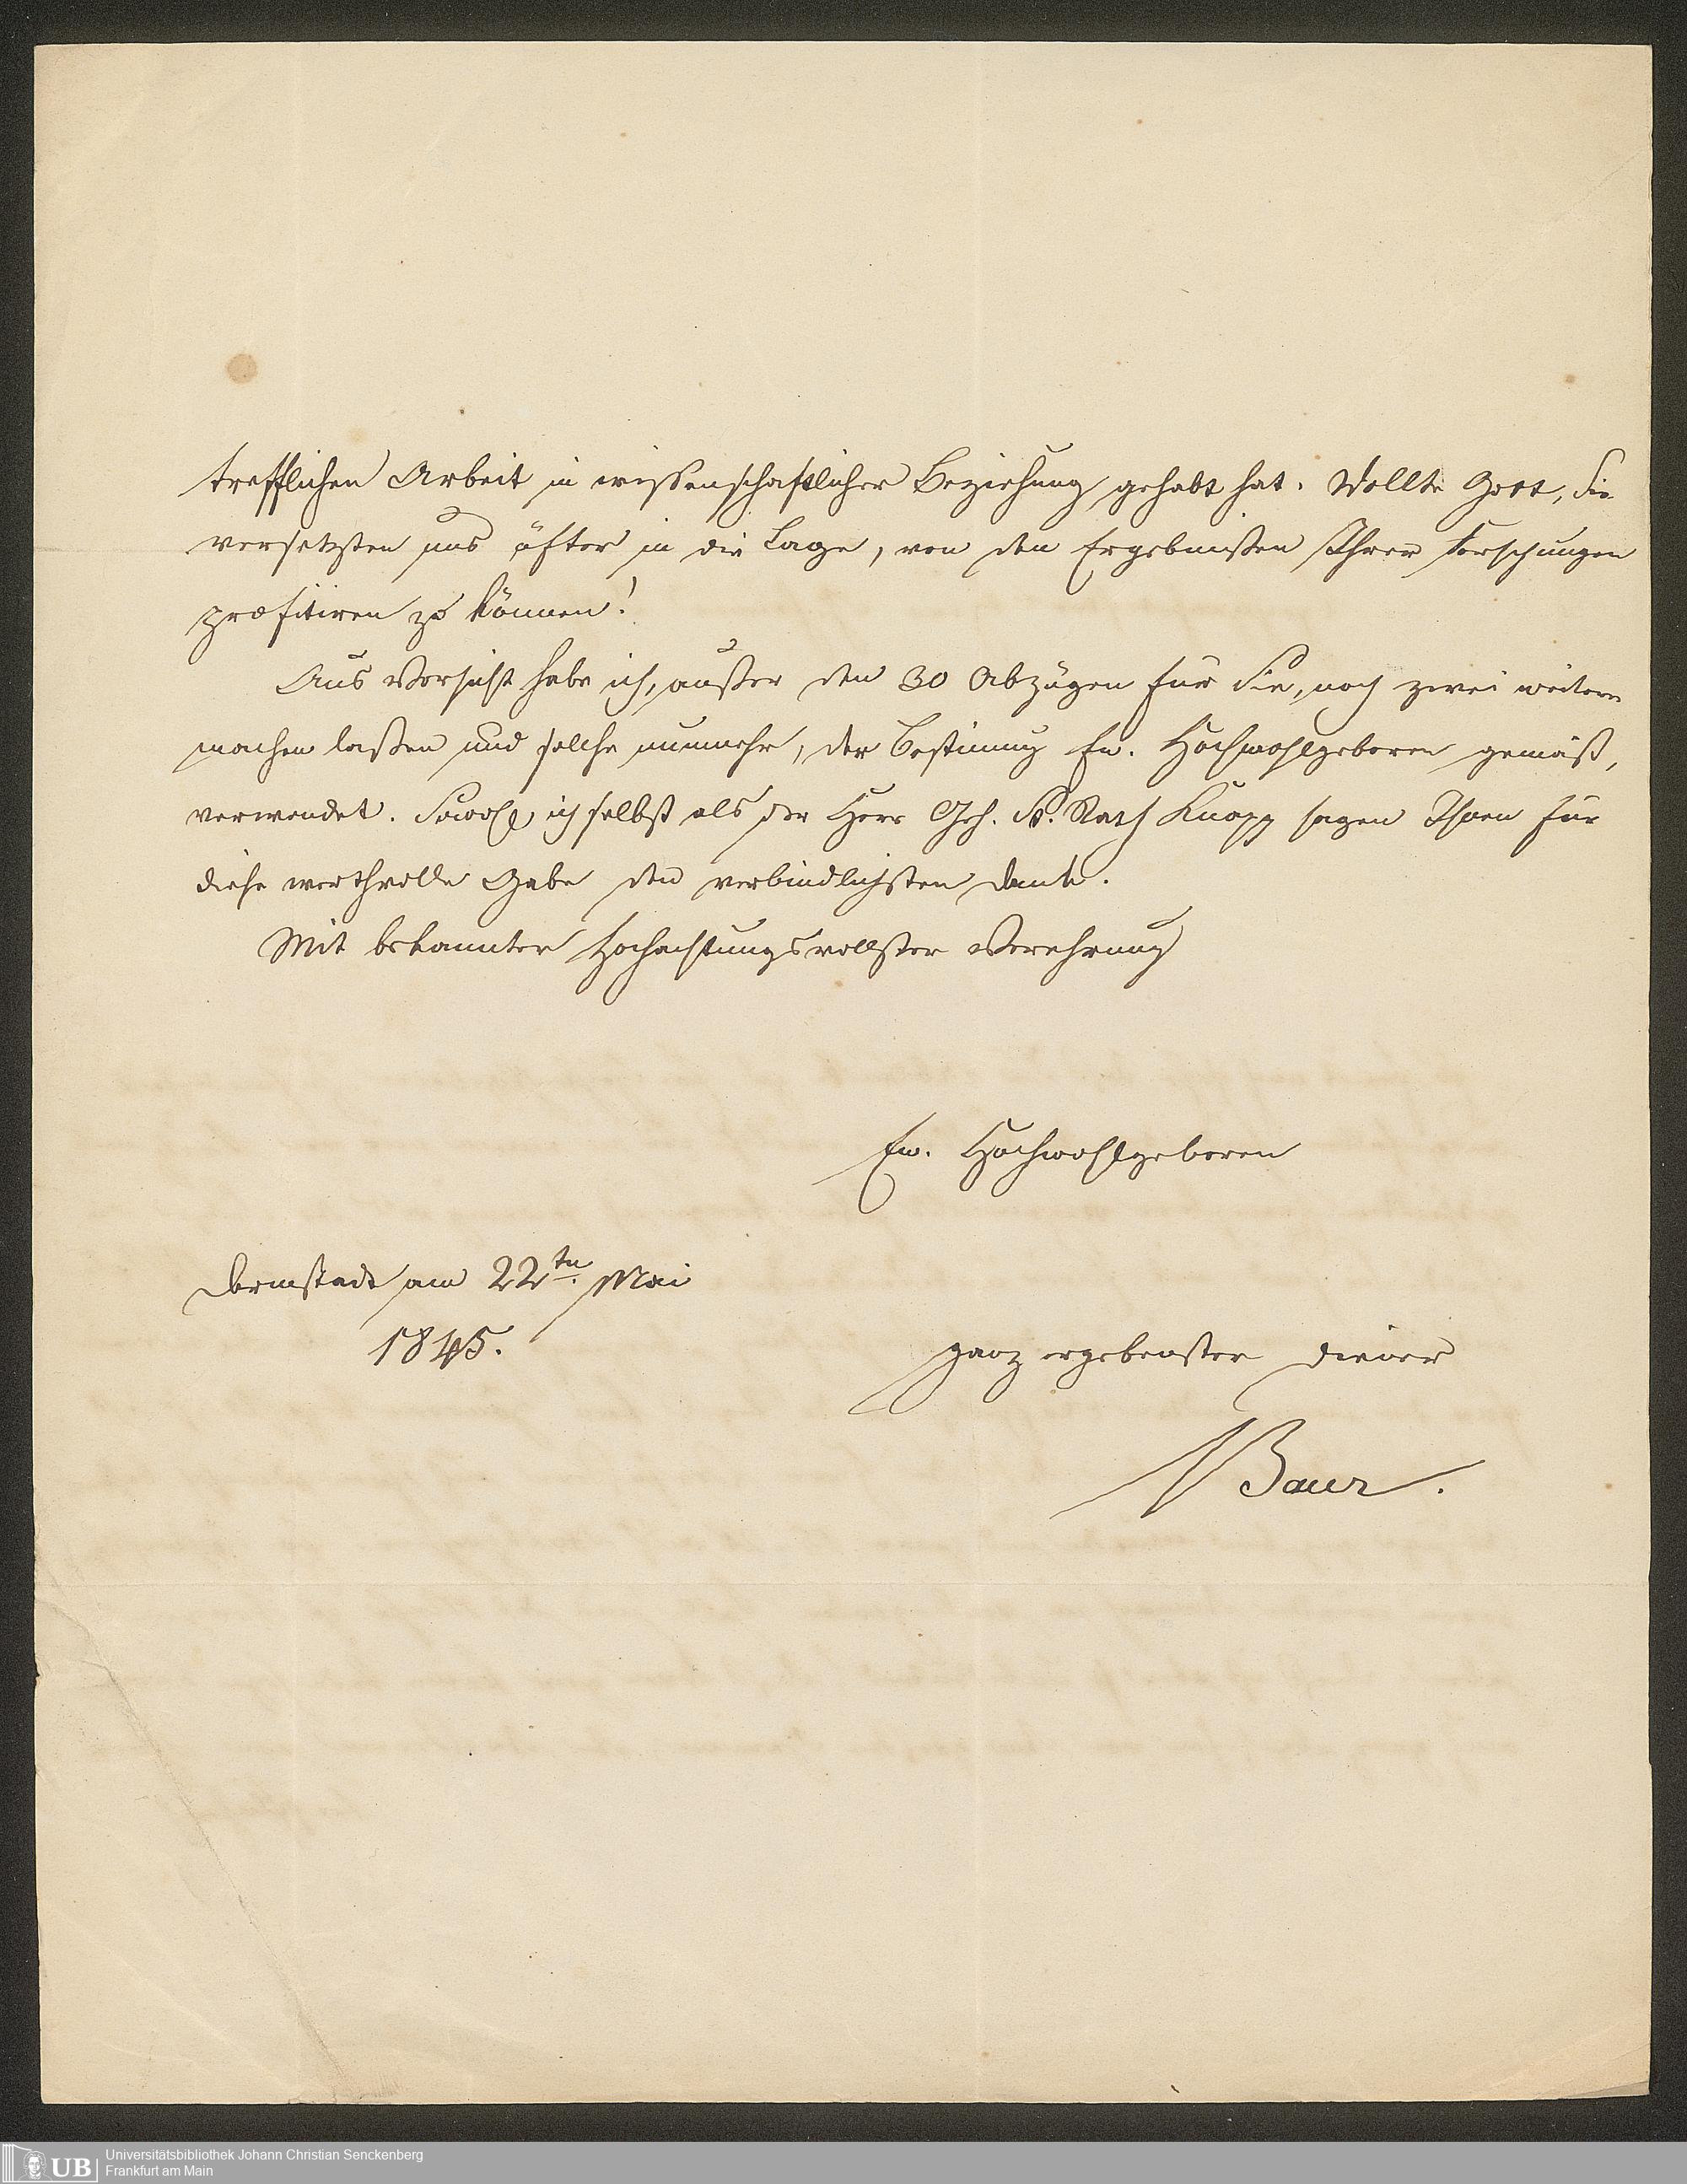 trefflichen Arbeit in wissenschaftlicher Beziehung gehabt hat. Wollte Gott, Sie
versetzten uns öfter in die Lage, von den Ergebnißen Ihrer Forschungen
profitiren zu können!
Aus Vorsicht habe ich, außer den 30 Abzügen für Sie, noch zwei weitere
machen laßen und solche nunmehr, der Bestimung Ew. Hochwohlgeboren gemäß,
verwendet. Sowohl ich selbst als der Herr Geh. St. Rath Knapp sagen Ihnen für
diese werthvolle Gabe den verbindlichsten Dank.
Mit bekannter hochachtungsvollster Verehrung
Ew. Hochwohlgeboren
Darmstadt am 22ten Mai
1845.
ganz ergebenster Diener
Baur.
Universitätsbibliothek Johann Christian Senckenberg
Frankfurt am Main
UB